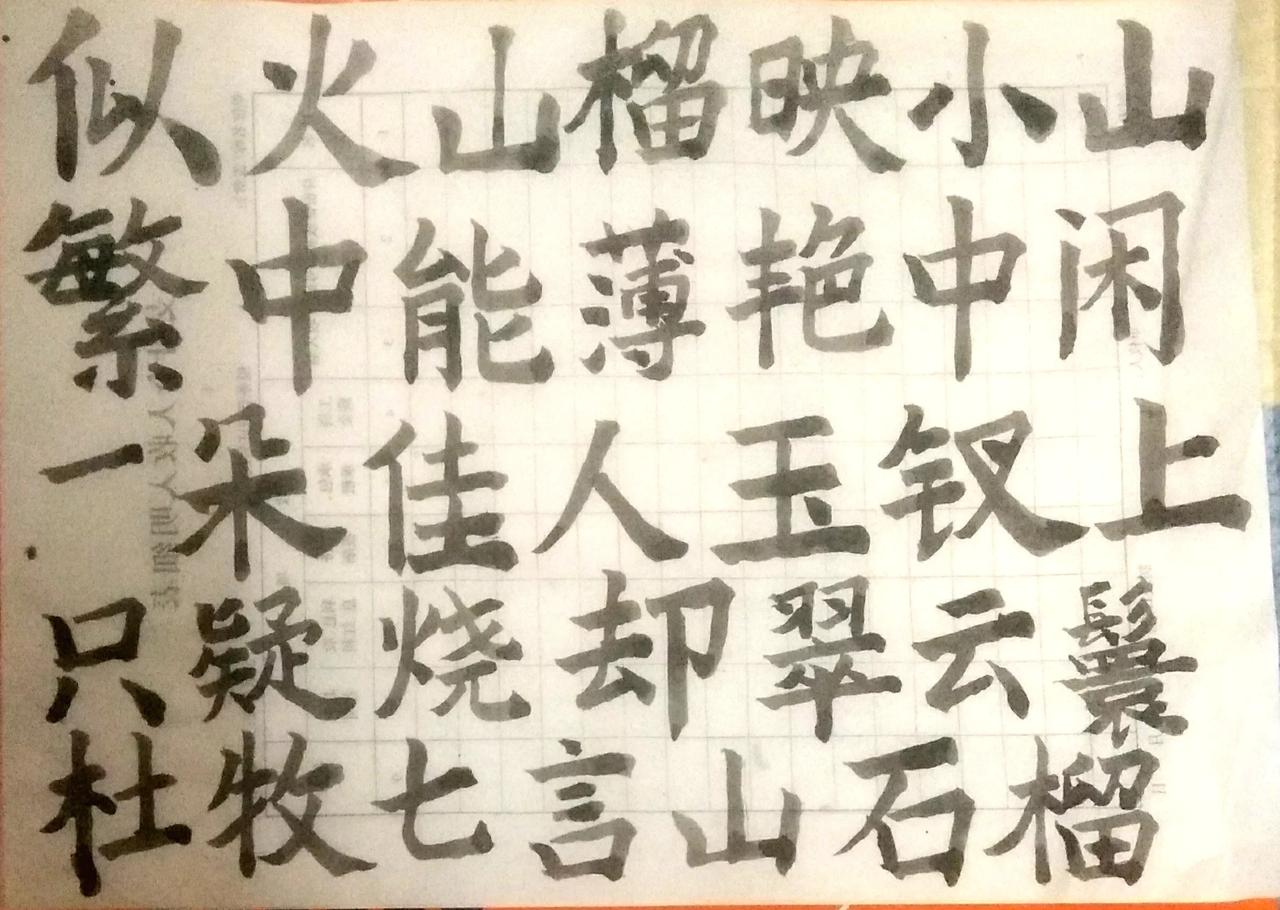 似火山榴映小山
繁中能薄艳中闲
一朵佳人玉钗上
只疑烧却翠云鬟
杜牧七言山石榴